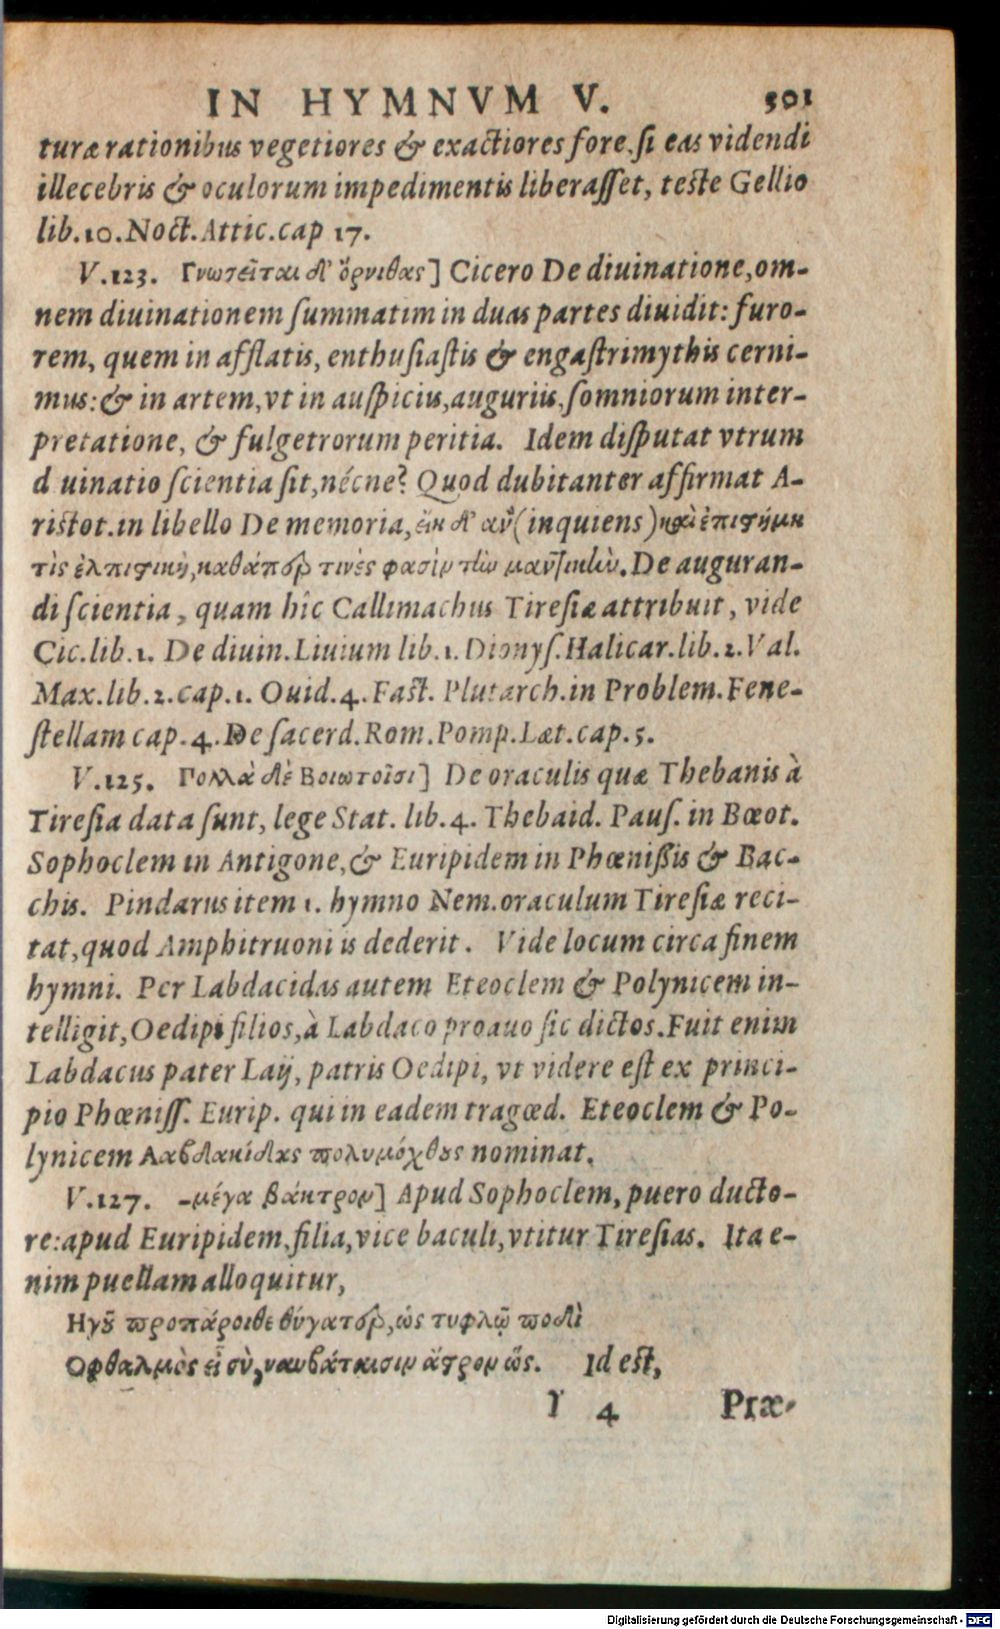 IN HYMNVM V. 501
turæ rationibus vegetiores & exactiores fore, si eas videndi
illecebris & oculorum impedimentis liberasset, teste Gellio
lib.10.Noct.Attic.cap 17.
V.123. Γνωσεῖται δ' ὄρνιθας] Cicero De diuinatione, om-
nem diuinationem summatim in duas partes diuidit: furo-
rem, quem in afflatis, enthusiastis & engastrimythis cerni-
mus: & in artem, vt in auspiciis, auguriis, somniorum inter-
pretatione, & fulgetrorum peritia. Idem disputat vtrum
d uinatio scientia sit, nécne? Quod dubitanter affirmat A-
ristot. in libello De memoria, εἴη δ' ἂν (inquiens) καὶ ἐπιστήμη
τὶς ἐλπιστικὴ, καθάπερ τινές φασὶν τὴν μαντικὴν. De auguran-
di scientia, quam hîc Callimachus Tiresiæ attribuit, vide
Cic.lib.1. De diuin. Liuium lib.1. Dionys. Halicar.lib.2. Val.
Max.lib.2.cap.1. Ouid.4. Fast. Plutarch.in Problem. Fene-
stellam cap.4. De sacerd. Rom. Pomp. Læt.cap.5.
V.125. Πολλὰ δὲ Βοιωτοῖσι] De oraculis quæ Thebanis à
Tiresia data sunt, lege Stat. lib.4. Thebaid. Paus. in Bœot.
Sophoclem in Antigone, & Euripidem in Phœnissis & Bac-
chis. Pindarus item 1. hymno Nem. oraculum Tiresiæ reci-
tat, quod Amphitruoni is dederit. Vide locum circa finem
hymni. Per Labdacidas autem Eteoclem & Polynicem in-
telligit, Oedipi filios, à Labdaco proauo sic dictos. Fuit enim
Labdacus pater Laij, patris Oedipi, vt videre est ex princi-
pio Phœniss. Eurip. qui in eadem tragœd. Eteoclem & Po-
lynicem Λαβδακίδας πολυμόχθους nominat.
V.127. -μέγα βάκτρον] Apud Sophoclem, puero ducto-
re: apud Euripidem, filia, vice baculi, vtitur Tiresias. Ita e-
nim puellam alloquitur,
Ηγοῦ προπάροιθε θύγατερ, ὡς τυφλῷ ποδὶ
Οφθαλμὸς εἶ σὺ, ναυβάταισιν ἄστρον ὥς. Id est,
Y 4 Præ-
Digitalisierung gefördert durch die Deutsche Forschungsgemeinschaft - DFG